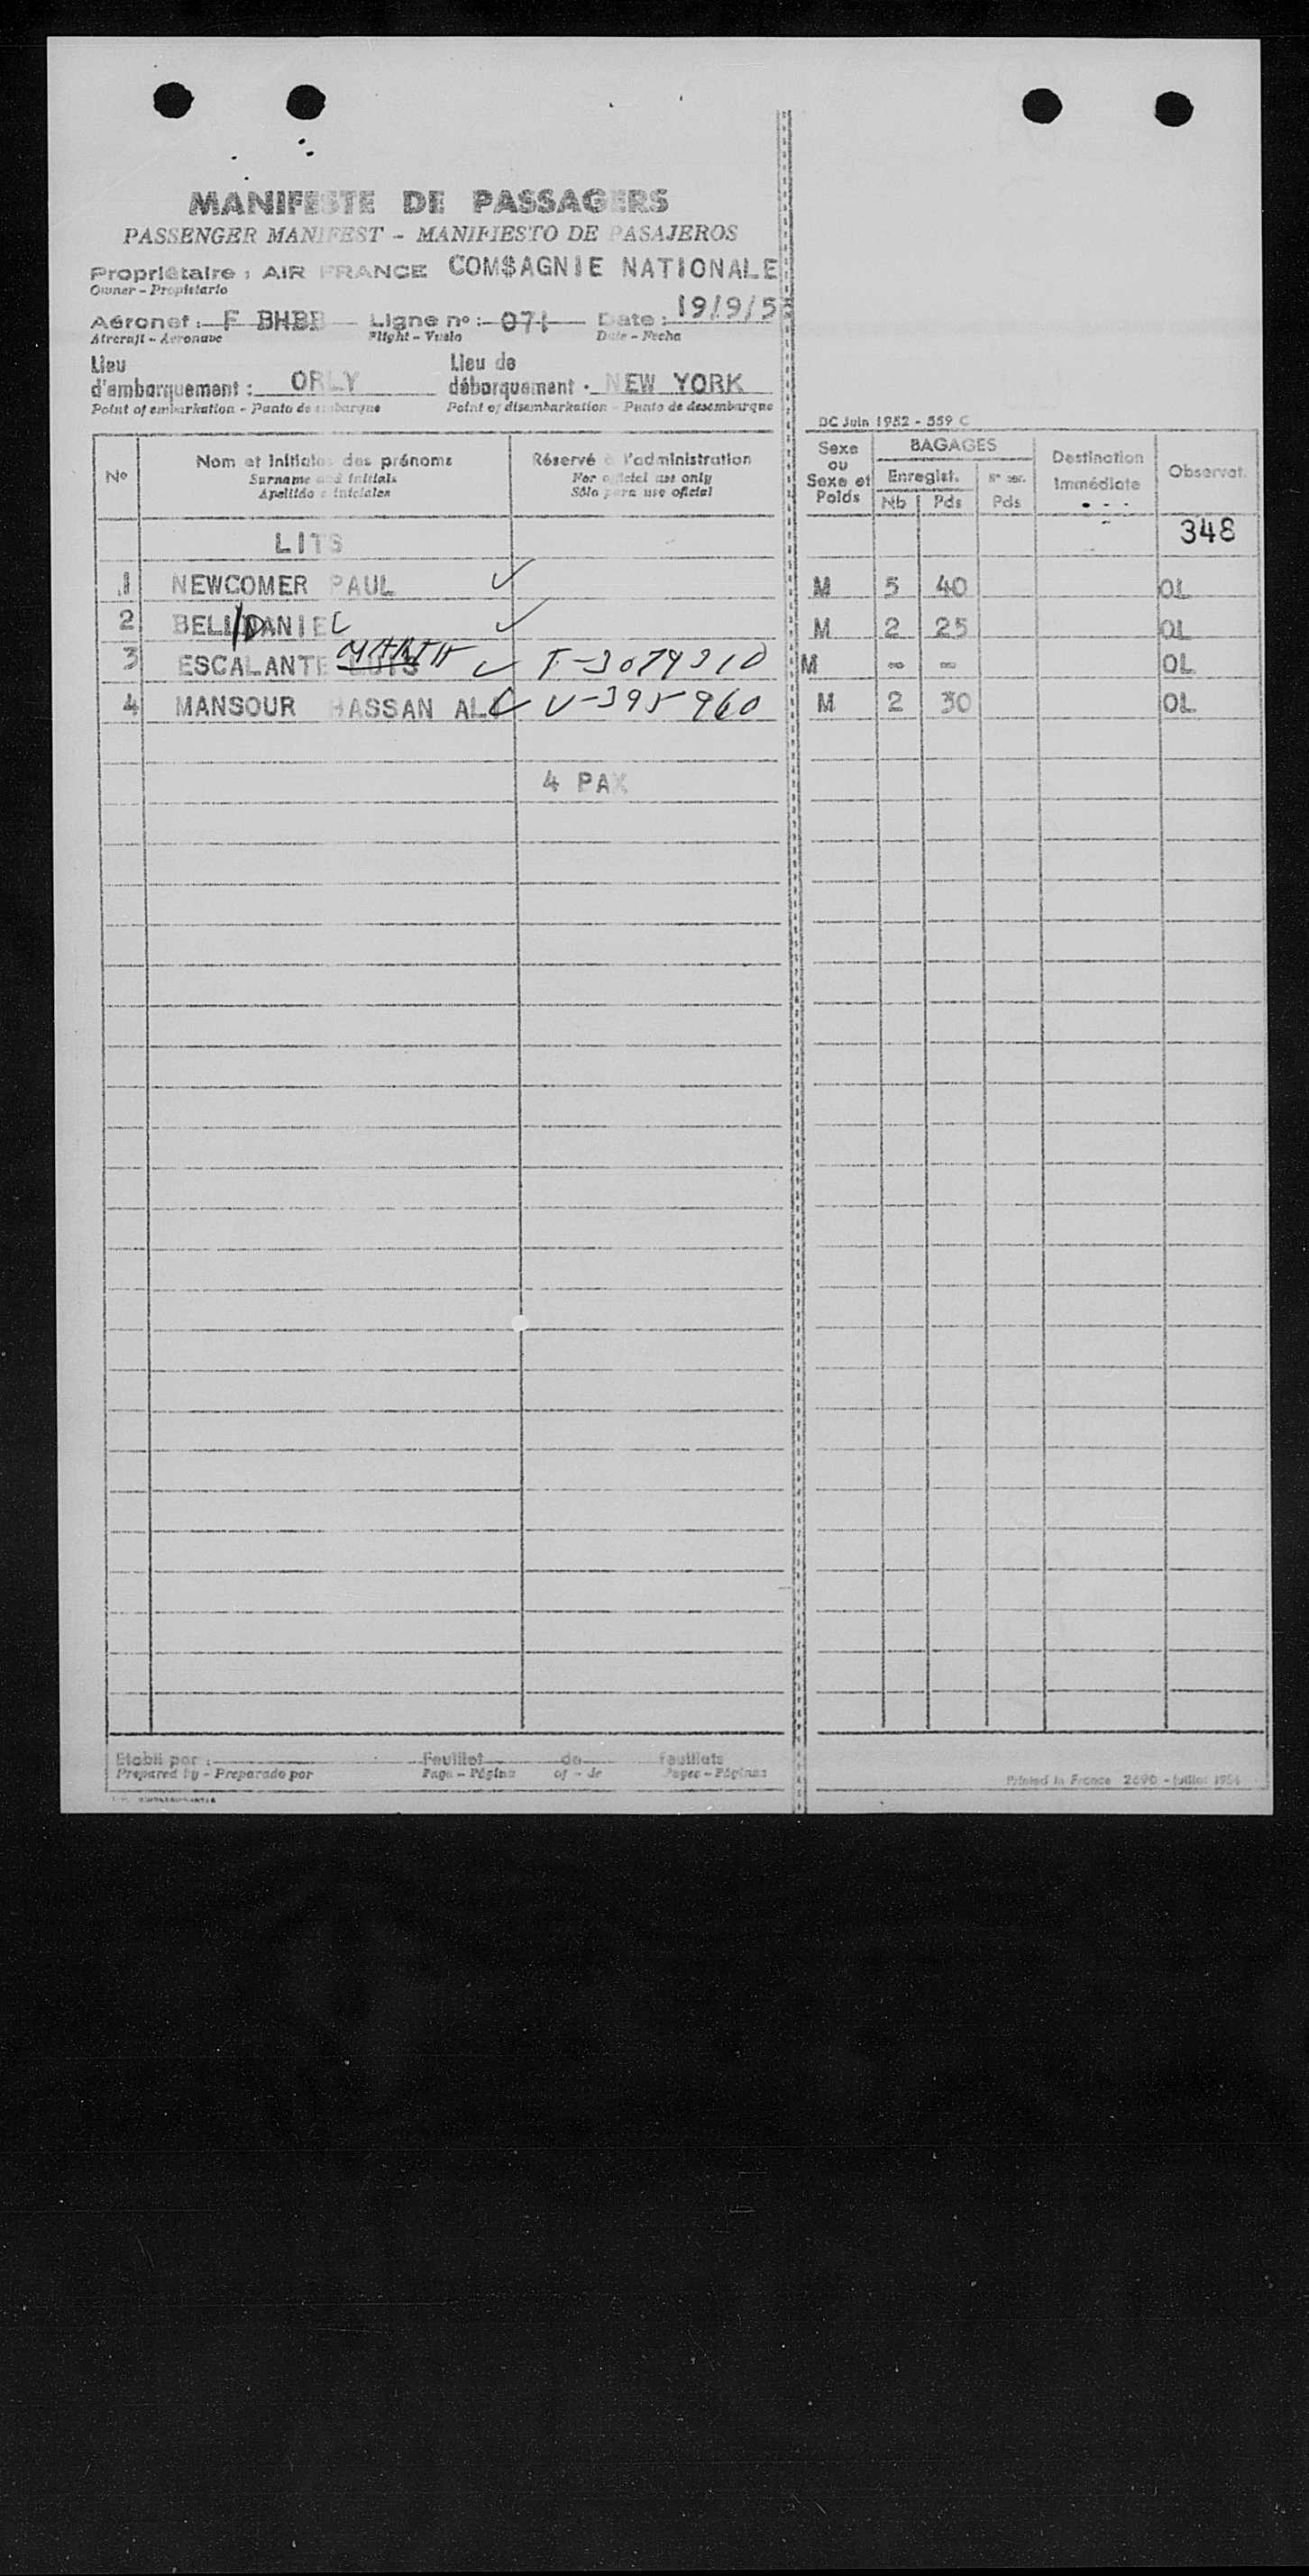 MANIFESTE DE PASSAGERS
PASSENGER MANIFEST - MANIFIESTO DE PASAJEROS
Propriétaire : AIR FRANCE COMSAGNIE NATIONALE
Owner - Propietario
Aéronef : F BHBB Ligne nº : 071 Date : 19/9/55
Aircraft - Aeronave Flight - Vuelo Date - Fecha
Lieu d'embarquement : ORLY Lieu de débarquement : NEW YORK
Point of embarkation - Punto de embarque Point of disembarkation - Punto de desembarque
DC Juin 1952 - 559 C
Nº Nom et initiales des prénoms Réservé à l'administration Sexe ou Sexe et Poids BAGAGES Destination Immédiate Observat.
Surname and initials For official use only Enregist.
Apellido e iniciales Sólo para uso oficial Nb Pds Pds
LITS 348
1 NEWCOMER PAUL ✓ M 5 40 OL
2 BELL/DANIEL ✓ M 2 25 OL
3 ESCALANTE LUIS MARTA ✓ T-3079310 M - - OL
4 MANSOUR HASSAN ALI ✓ V-395960 M 2 30 OL
4 PAX
Etabli par : Feuillet de feuillets
Prepared by - Preparado por Page - Página of - de Pages - Páginas
Printed in France 2690 - juillet 1954